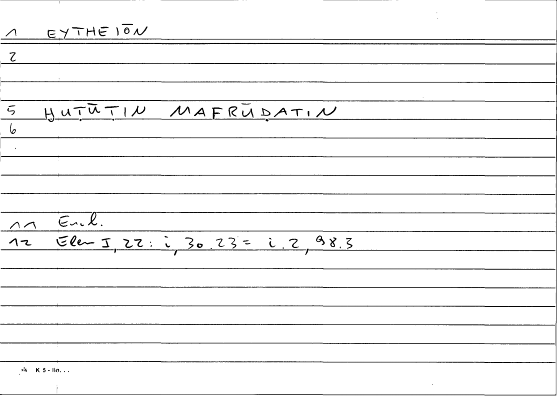 1 EYTHEIŌN
2
5 ḪUṬŪṬIN MAFRŪḌATIN
6
11 Eucl.
12 Elem I, 22: i, 30.23 = i.2, 98.3
K 5 - lin...